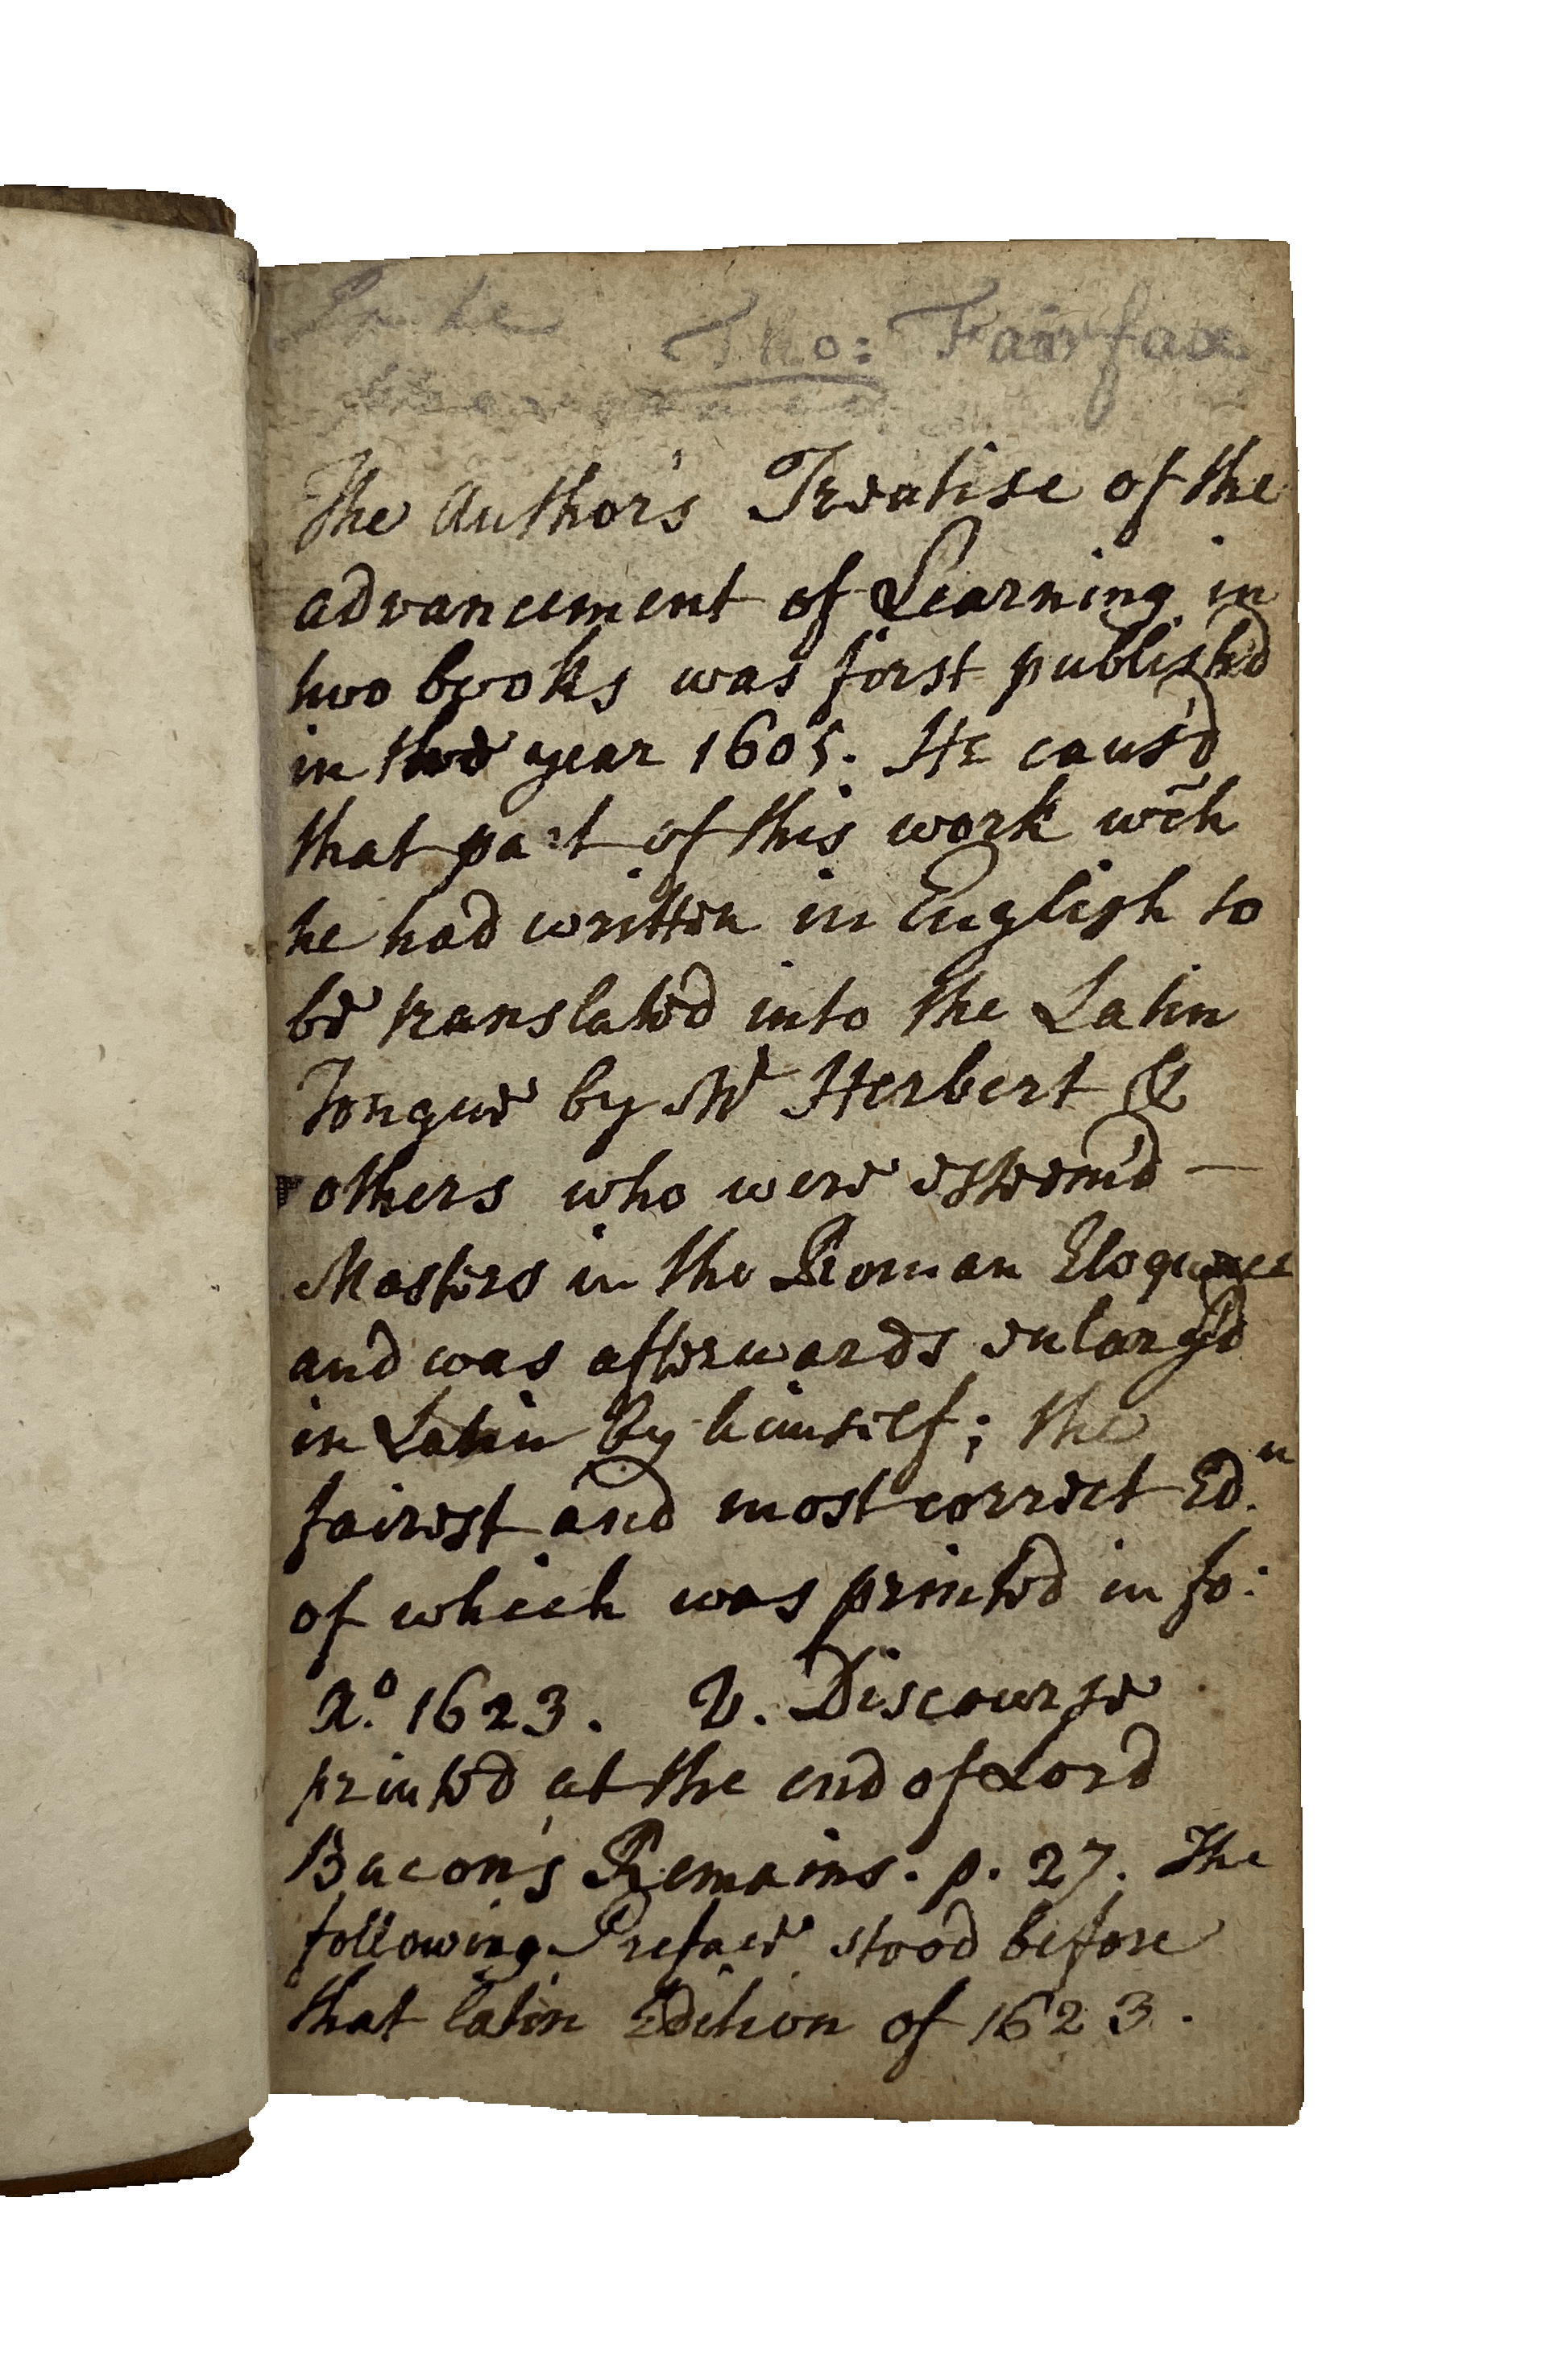 Tho: Fairfax
The Author's Treatise of the
advancement of Learning in
two books was first publish'd
in the year 1605. He caus'd
that part of this work wch
he had written in English to
be translated into the Latin
Tongue by Mr Herbert &
others who were esteem'd —
Masters in the Roman Eloquence
and was afterwards enlarg'd
in Latin by himself; the
fairest and most correct Ed.n
of which was printed in fo:
A.o 1623. V. Discourse
printed at the end of Lord
Bacon's Remains. p. 27. The
following Preface stood before
that latin Edition of 1623.